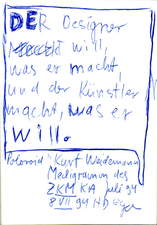 DER Designer
will,
was er macht,
und der Künstler
macht, was er
will.
Polaroid "Kurt Weidemann
des
ZKM KA Juli 94
8 VII 94 HD